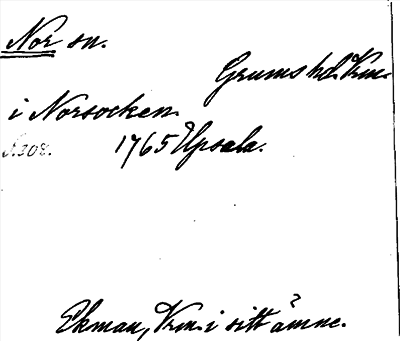 Nor sn.
Grums hd. Vrm.
i Norsocken
S. 308. 1765 Upsala.
Ekman, Vrm. i sitt ämne.